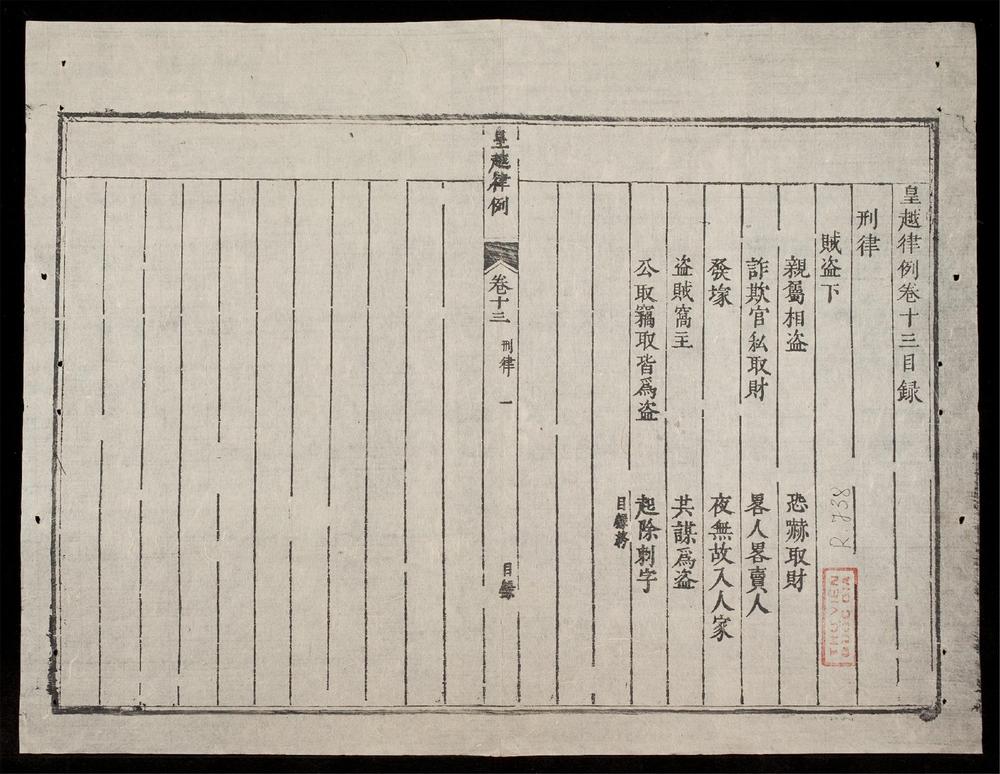 皇越律例卷十三目録
刑律
賊盗下
親屬相盗
恐嚇取財
詐欺官私取財
畧人畧賣人
發塚
夜無故入人家
盗賊窩主
共謀爲盗
公取竊取皆爲盗
起除刺字
目録終
皇越律例
卷十三
刑律
一
目録
R.738
THƯ VIỆN
QUỐC GIA